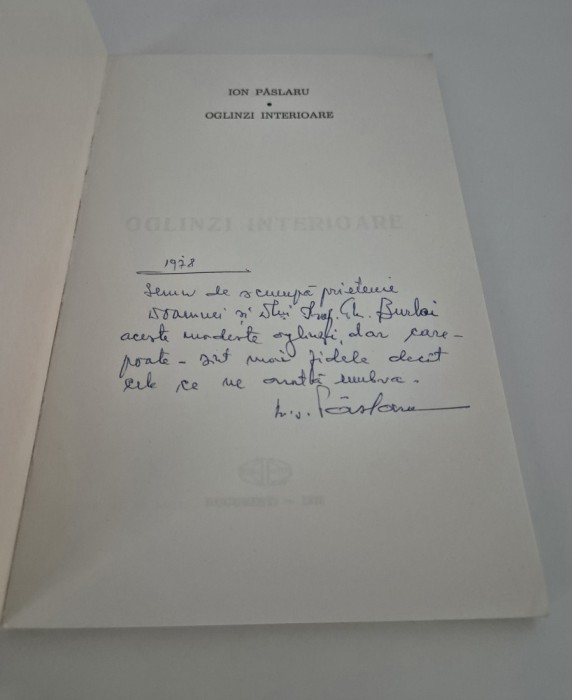 ION PÂSLARU
•
OGLINZI INTERIOARE
OGLINZI INTERIOARE
1978
Semn de scumpă prietenie
Doamnei și Dlui Prof. Gh. Burloi
aceste modeste oglinzi, dar care-
poate - sînt mai fidele decît
cele ce ne arată umbra.
Pâslaru
BUCUREȘTI